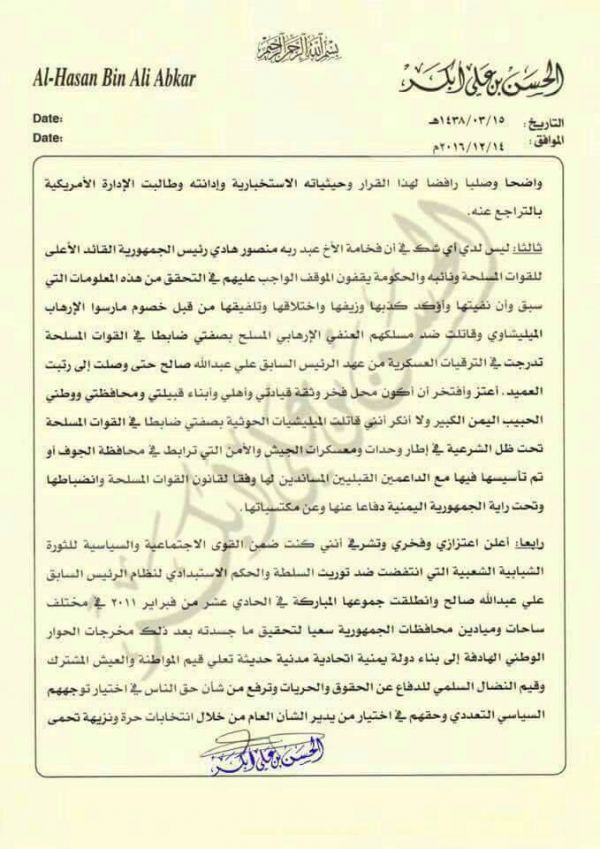 بسم الله الرحمن الرحيم
Al-Hasan Bin Ali Abkar
الحسن بن علي أبكر
Date:
التاريخ: ١٤٣٨/٠٣/١٥هـ
Date:
الموافق: ٢٠١٦/١٢/١٤م
واضحا وصلبا رافضا لهذا القرار وحيثياته الاستخبارية وإدانته وطالبت الإدارة الأمريكية
بالتراجع عنه.
ثالثا: ليس لدي أي شك في أن فخامة الأخ عبد ربه منصور هادي رئيس الجمهورية القائد الأعلى
للقوات المسلحة ونائبه والحكومة يقفون الموقف الواجب عليهم في التحقق من هذه المعلومات التي
سبق وأن نفيتها وأؤكد كذبها وزيفها واختلاقها وتلفيقها من قبل خصوم مارسوا الإرهاب
الميليشاوي وقاتلت ضد مسلكهم العنفي الإرهابي المسلح بصفتي ضابطا في القوات المسلحة
تدرجت في الترقيات العسكرية من عهد الرئيس السابق علي عبدالله صالح حتى وصلت إلى رتبت
العميد. أعتز وأفتخر أن أكون محل فخر وثقة قيادتي وأهلي وأبناء قبيلتي ومحافظتي ووطني
الحبيب اليمن الكبير ولا أنكر أنني قاتلت الميليشيات الحوثية بصفتي ضابطا في القوات المسلحة
تحت ظل الشرعية في إطار وحدات ومعسكرات الجيش والأمن التي ترابط في محافظة الجوف أو
تم تأسيسها فيها مع الداعمين القبليين المساندين لها وفقا لقانون القوات المسلحة وانضباطها
وتحت راية الجمهورية اليمنية دفاعا عنها وعن مكتسباتها.
رابعا: أعلن اعتزازي وفخري وتشرفي أنني كنت ضمن القوى الاجتماعية والسياسية للثورة
الشبابية الشعبية التي انتفضت ضد توريث السلطة والحكم الاستبدادي لنظام الرئيس السابق
علي عبدالله صالح وانطلقت جموعها المباركة في الحادي عشر من فبراير ٢٠١١ في مختلف
ساحات وميادين محافظات الجمهورية سعيا لتحقيق ما جسدته بعد ذلك مخرجات الحوار
الوطني الهادفة إلى بناء دولة يمنية اتحادية مدنية حديثة تعلي قيم المواطنة والعيش المشترك
وقيم النضال السلمي للدفاع عن الحقوق والحريات وترفع من شأن حق الناس في اختيار توجههم
السياسي التعددي وحقهم في اختيار من يدير الشأن العام من خلال انتخابات حرة ونزيهة تحمى
الحسن بن علي أبكر